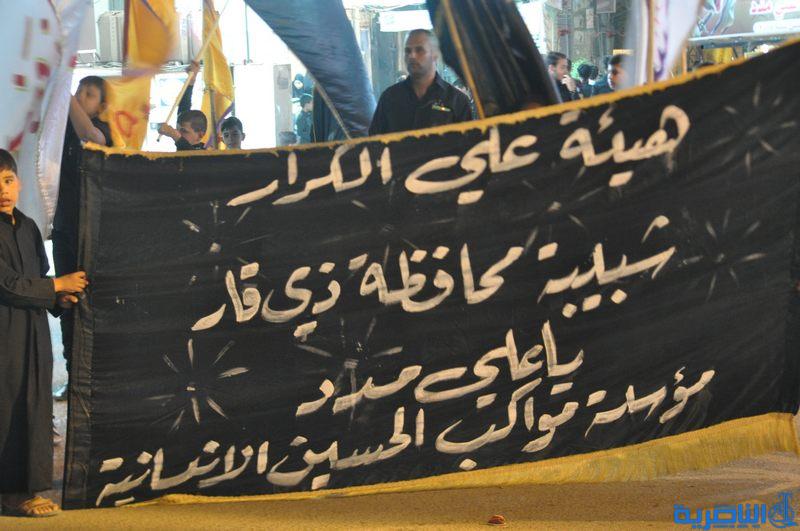 هيئة علي الكرار
شبيبة محافظة ذي قار
يا علي مدد
مؤسسة مواكب الحسين الانسانية
الناصرية